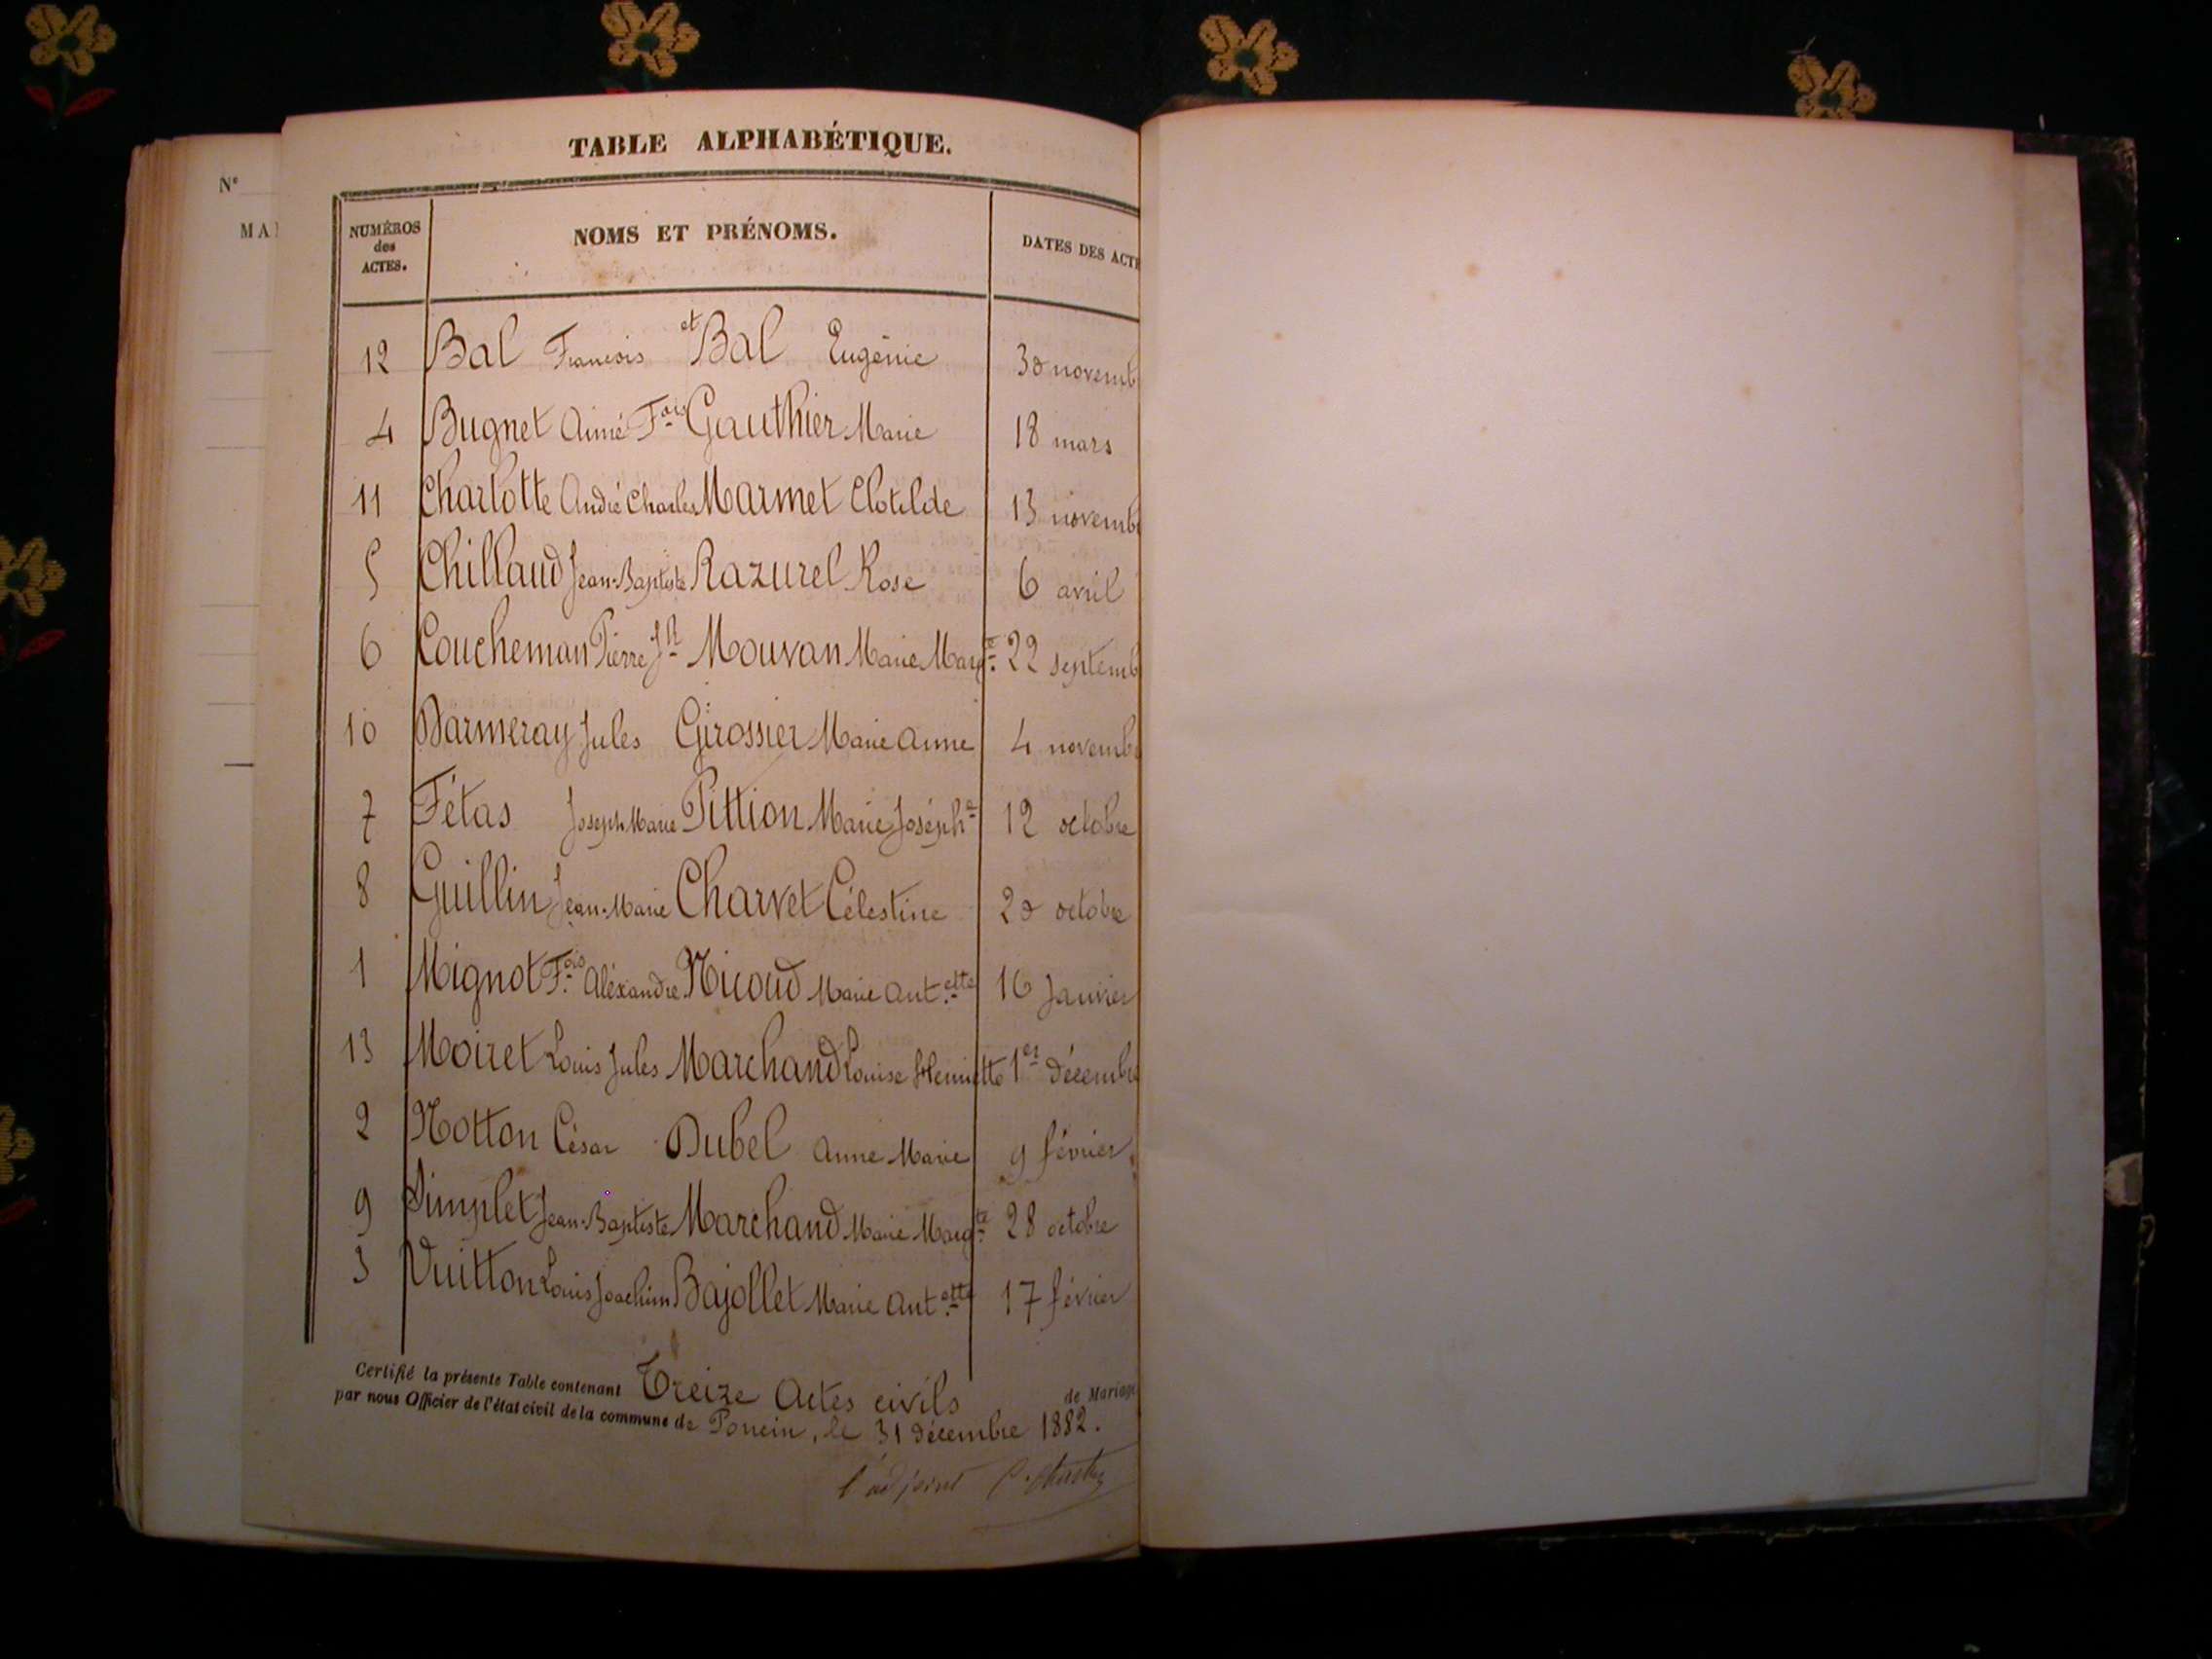 N°
MA
TABLE ALPHABÉTIQUE.
NUMÉROS des ACTES. NOMS ET PRÉNOMS. DATES DES ACTE
12 Bal Francois et Bal Eugénie 30 novemb
4 Bugnet Aimé Fois Gauthier Marie 18 mars
11 Charlotte André Charles Marmet Clotilde 13 novemb
5 Chillaud Jean-Baptiste Razurel Rose 6 avril
6 Coucheman Pierre Mouvan Marie Margte 22 septemb
10 Darmeray Jules Girossier Marie Anne 4 novemb
7 Fétas Joseph Marie Pittion Marie Joséphe 12 octobre
8 Guillin Jean-Marie Charvet Célestine 20 octobre
1 Mignot Fois Aléxandre Nicoud Marie Ant.ette 16 Janvier
13 Moiret Louis Jules Marchand Louise Henriette 1er décembre
2 Notton César Dubel Anne Marie 9 février
9 Simplet Jean-Baptiste Marchand Marie Margte 28 octobre
3 Vuitton Louis Joachim Bajollet Marie Ant.ette 17 février
Certifié la présente Table contenant Treize Actes civils de Mariage
par nous Officier de l'état civil de la commune de Poncin, le 31 décembre 1882.
l'adjoint